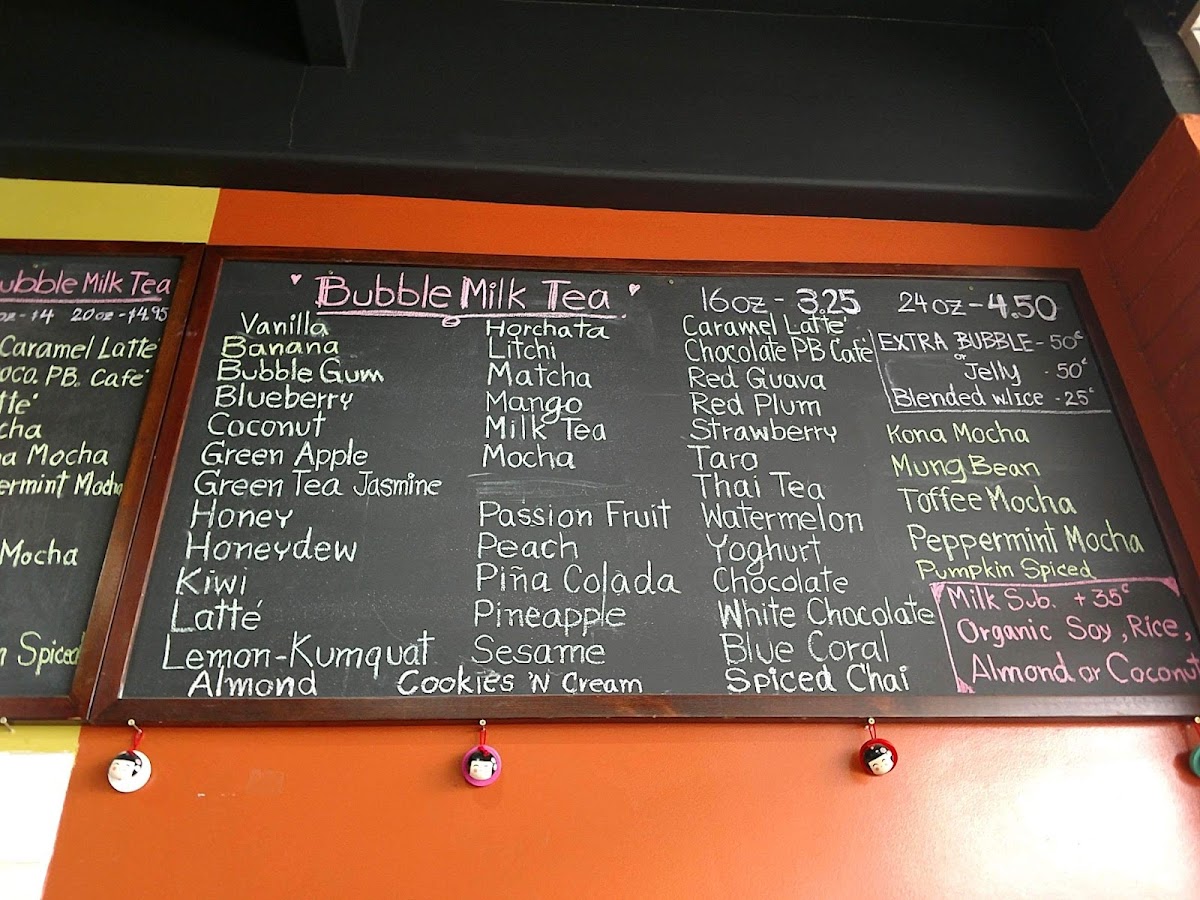 ubble Milk Tea
oz - $4 20 oz - $4.95
Caramel Latte'
oco. P.B. Cafe'
tte'
cha
a Mocha
ermint Mocha
Mocha
n Spiced
Bubble Milk Tea
16 oz - 3.25 24 oz - 4.50
Vanilla
Banana
Bubble Gum
Blueberry
Coconut
Green Apple
Green Tea Jasmine
Honey
Honeydew
Kiwi
Latté
Lemon-Kumquat
Almond
Horchata
Litchi
Matcha
Mango
Milk Tea
Mocha
Passion Fruit
Peach
Piña Colada
Pineapple
Sesame
Cookies 'N Cream
Caramel Latte'
Chocolate PB Cafe'
Red Guava
Red Plum
Strawberry
Taro
Thai Tea
Watermelon
Yoghurt
Chocolate
White Chocolate
Blue Coral
Spiced Chai
EXTRA BUBBLE - 50¢
or
Jelly - 50¢
Blended w/Ice - 25¢
Kona Mocha
Mung Bean
Toffee Mocha
Peppermint Mocha
Pumpkin Spiced
Milk Sub. + 35¢
Organic Soy, Rice,
Almond or Coconut